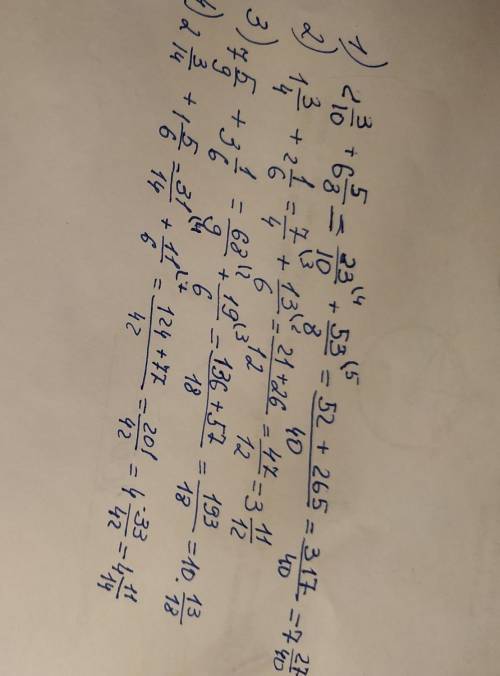 1) 2 3/10 + 6 5/8 = 23/10 (4 + 53/8 (5 = 52 + 265/40 = 317/40 = 7 27/40
2) 1 3/4 + 2 1/6 = 7/4 (3 + 13/6 (2 = 21 + 26/12 = 47/12 = 3 11/12
3) 7 5/9 + 3 1/6 = 68/9 (2 + 19/6 (3 = 136 + 57/18 = 193/18 = 10 . 13/18
4) 2 3/14 + 1 5/6 = 31/14 (4 + 11/6 (7 = 124 + 77/42 = 201/42 = 4 . 33/42 = 4 11/14